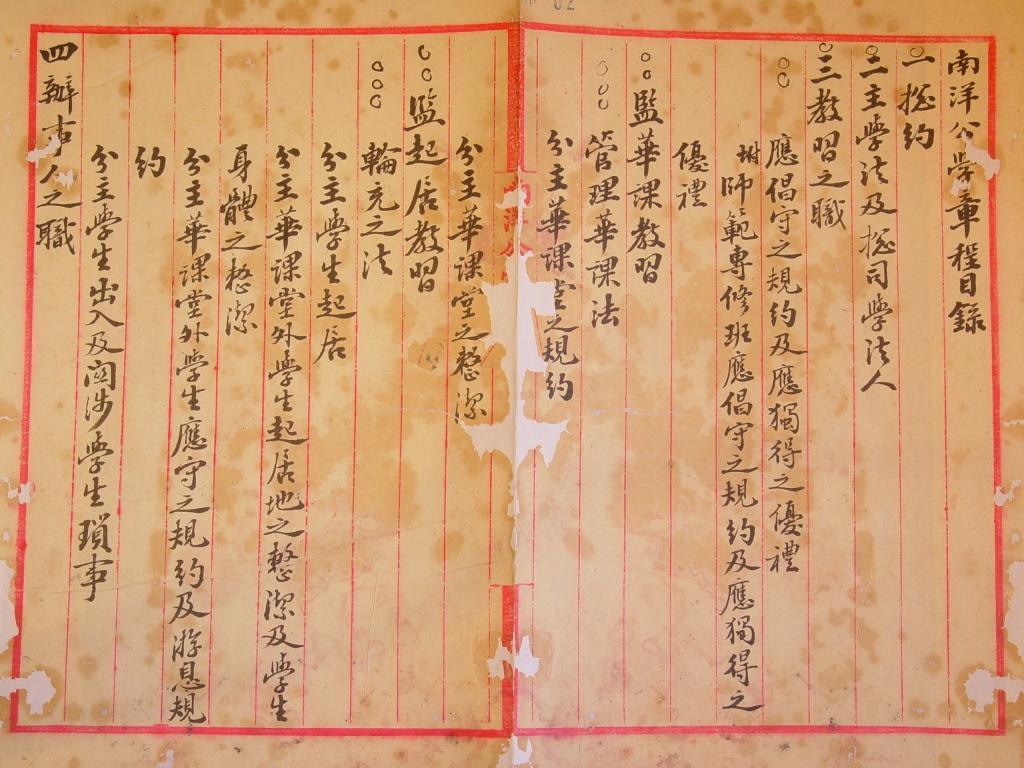 南洋公學章程目錄
一 總約
二 主學法及總司學法人
三 教習之職
應倡守之規約及應獨得之優禮
坿師範專修班應倡守之規約及應獨得之
優禮
監華課教習
管理華課法
分主華課堂之規約
分主華課堂之整潔
監起居教習
輪充之法
分主學生起居
分主華課堂外學生起居地之整潔及學生
身體之整潔
分主華課堂外學生應守之規約及游息規
約
分主學生出入及關涉學生瑣事
四 辦事人之職